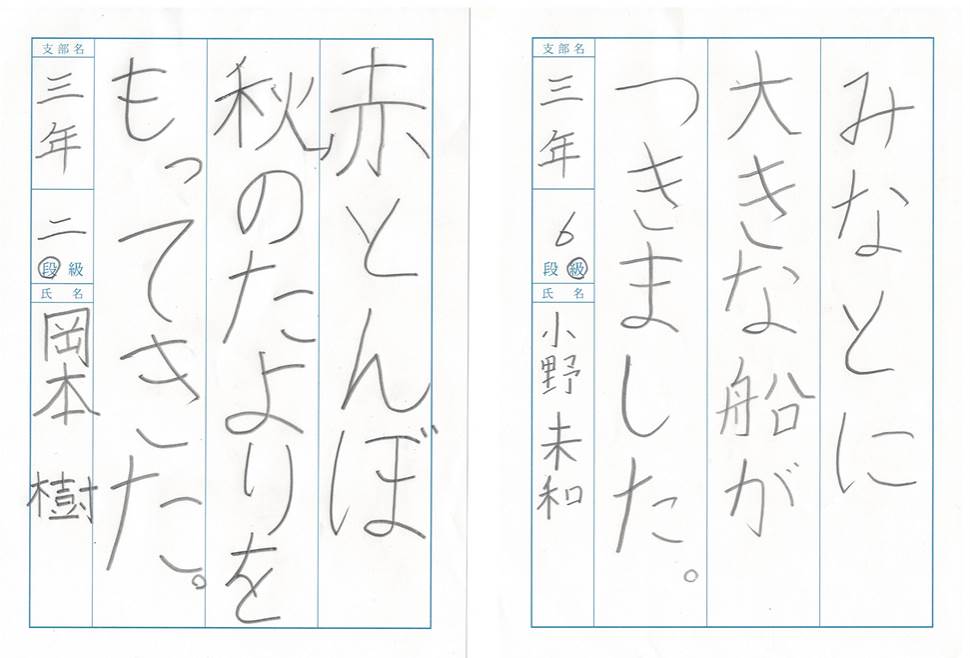 みなとに
大きな船が
つきました。
支部名
三年
6
段 級
氏名
小野 未和
赤とんぼ
秋のたよりを
もってきた。
支部名
三年
二
段 級
氏名
岡本 樹